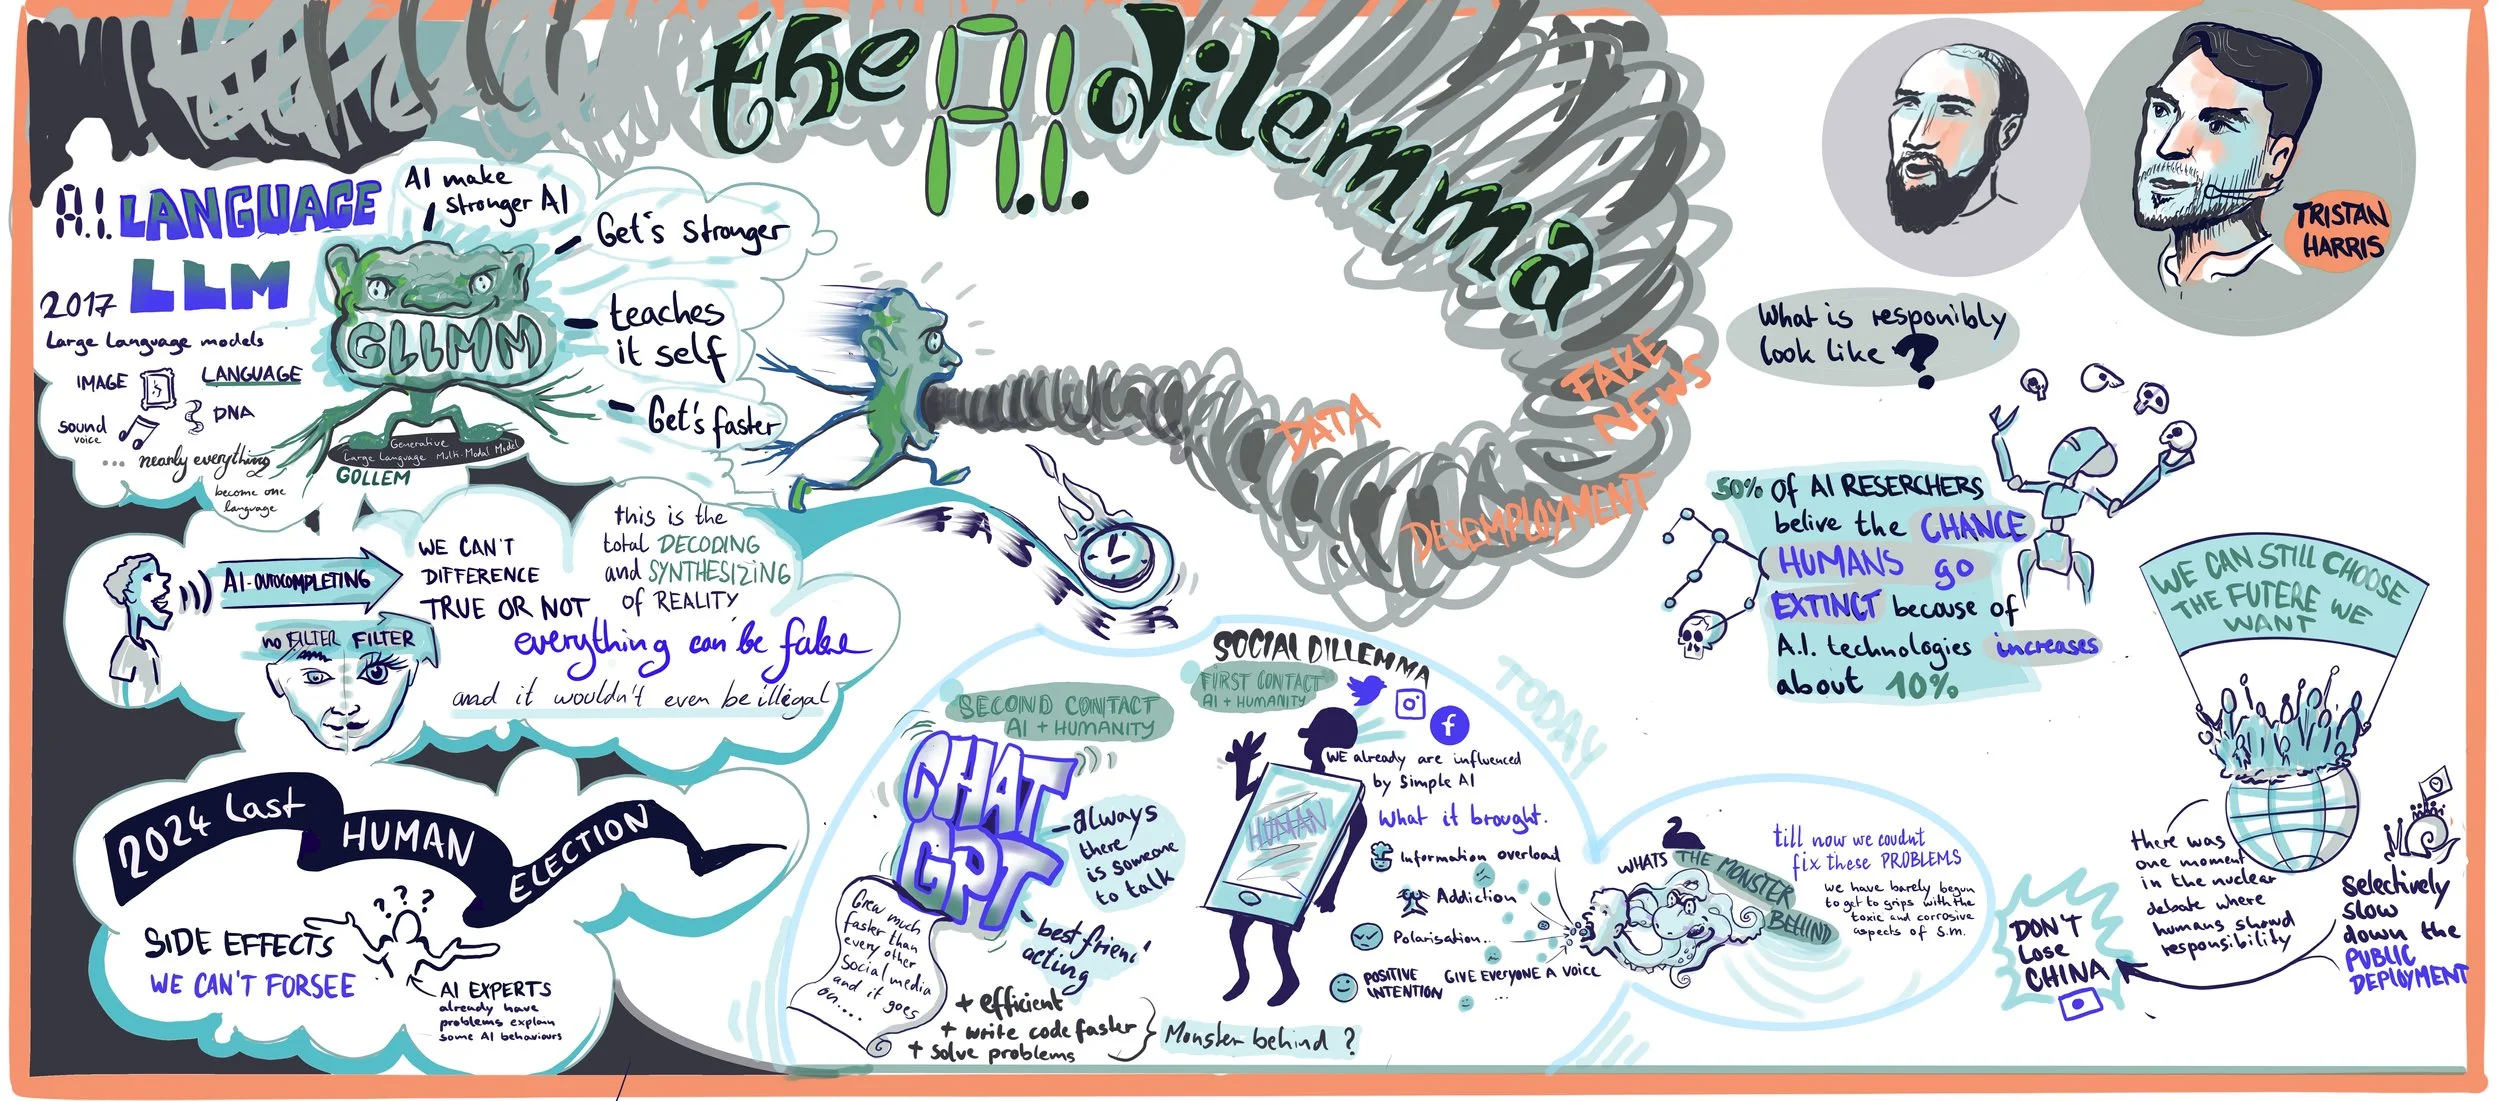 the A.I. dilemma
TRISTAN
HARRIS
A.I. LANGUAGE
LLM
2017
Large Language models
IMAGE
LANGUAGE
SOUND
voice
DNA
... nearly everything
become one
language
AI make
stronger AI
Get's stronger
teaches
it self
Get's faster
GLLMM
Generative
Large Language Multi-Modal Model
GOLLEM
AI-autocompleting
no FILTER FILTER
WE CAN'T
DIFFERENCE
TRUE OR NOT
this is the
total DECODING
and SYNTHESIZING
of REALITY
everything can be fake
and it wouldn't even be illegal
2024 Last
HUMAN
ELECTION
SIDE EFFECTS
WE CAN'T FORSEE
???
AI EXPERTS
already have
problems explain
some AI behaviours
DATA
FAKE
NEWS
DESEMPLOYMENT
SECOND CONTACT
AI + HUMANITY
CHAT
GPT
- always
there
is someone
to talk
- best friend
acting
Grew much
faster than
every other
Social media
and it goes
on.....
+ efficient
+ write code faster
+ solve problems
Monster behind ?
SOCIAL DILLEMMA
FIRST CONTACT
AI + HUMANITY
f
HUMAN
WE already are influenced
by simple AI
What it brought.
Information overload
Addiction
Polarisation..
POSITIVE
INTENTION
GIVE EVERYONE A VOICE
...
TODAY
WHATS THE MONSTER
BEHIND
?
till now we coudnt
fix these PROBLEMS
we have barely begun
to get to grips with the
toxic and corrosive
aspects of S.M.
What is responibly
look like ?
50% of AI RESERCHERS
belive the CHANCE
HUMANS go
EXTINCT because of
A.I. technologies increases
about 10%
WE CAN STILL CHOOSE
THE FUTERE WE
WANT
there was
one moment
in the nuclear
debate where
humans showd
responsibility
Selectively
slow
down the
PUBLIC
DEPLOYMENT
DON'T
Lose
CHINA